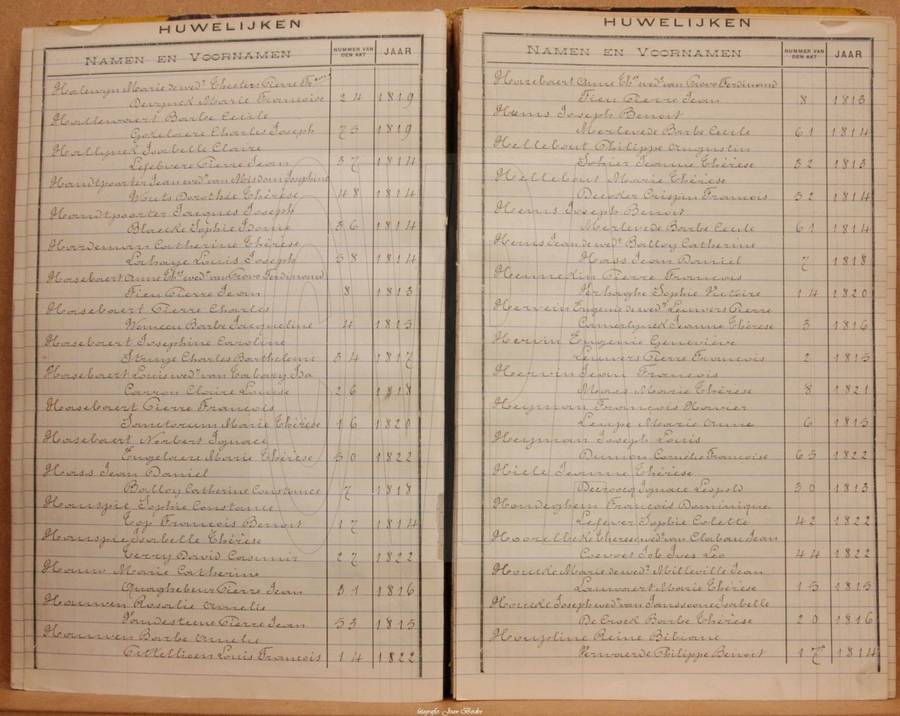 HUWELIJKEN
NAMEN EN VOORNAMEN NUMMER VAN DEN AKT JAAR
Halewyn Marie de wed.r Theeten Pierre
Derynck Marie Francoise 24 1819
Hallewaert Barbe Cecile
Gokelaere Charles Joseph 75 1819
Hallynck Isabelle Claire
Lefebvere Pierre Jean 37 1814
Handtpoorter Jean wed.r van Misdom Josephine
Wouts Dorothée Thérèse 48 1814
Handtpoorter Jacques Joseph
Blaecke Sophie Idonie 36 1814
Hardeman Catherine Thérèse
Lahaye Louis Joseph 58 1814
Hasebaert Anne Th.se wed.e van Provo Ferdinand
Tieu Pierre Jean 8 1813
Hasebaert Pierre Charles
Wancou Barbe Jacqueline 4 1815
Hasebaert Josephine Caroline
Charles Barthelemi 34 1817
Hasebaert Louis wed.r van Isa
Carron Claire Louise 26 1818
Hasebaert Pierre François
Sanctorum Marie Thérèse 16 1820
Hasebaert Norbert Ignace
Engelaere Marie Thérèse 50 1822
Hass Jean Daniel
Balloy Catherine Constance 7 1818
Hauspie Sophie Constance
Top Francois Benoit 17 1814
Hauspie Isabelle Thérèse
Terry David Casimir 27 1822
Hauw Marie Catherine
Quaghebeur Pierre Jean 31 1816
Hauwen Rosalie Amelie
Vandesteene Pierre Jean 53 1815
Hauwen Barbe Amelie
Louis Francois 14 1822
HUWELIJKEN
NAMEN EN VOORNAMEN NUMMER VAN DEN AKT JAAR
Hazebaert Anne Th.se wed.e van Provo Ferdinand
Tieu Pierre Jean 8 1813
Hems Joseph Benoit
Merlevede Barbe Cecile 61 1814
Hellebout Philippe Augustin
Sohier Jeanne Thérèse 32 1813
Hellebout Marie Thérèse
Decoker Crispin Francois 52 1814
Hems Joseph Benoit
Merlevede Barbe Cecile 61 1814
Hems Jean de wed.r Balloy Catherine
Hass Jean Daniel 7 1818
Hennekin Pierre Francois
Verhaghe Sophie Victoire 14 1820
Hervein Eugenie de wed.r Leuwers Pierre
Camerlynck Jeanne Thérèse 3 1816
Hervin Eugenie Geneviève
Leuwers Pierre Francois 2 1815
Hervin Jean Francois
Moraes Marie Thérèse 8 1821
Heyman Francois Xavier
Lempe Marie Anne 6 1815
Heyman Joseph Louis
Dumon Cornélie Francoise 65 1822
Hiele Jeanne Thérèse
Decrocq Ignace Léopold 30 1813
Hondeghem François Dominique
Lefever Sophie Colette 42 1822
Hoorelbeke Therese wed.e van Clabau Jean
Coevoet Job Ives Léo 44 1822
Houcke Marie de wed.r Milleville Jean
Lauwaert Marie Thérèse 15 1815
Houcke Joseph wed.r van Janssoone Isabelle
De Crock Barbe Thérèse 20 1816
Houzoline Reine Bibiane
Verwaerde Philippe Benoit 17 1814